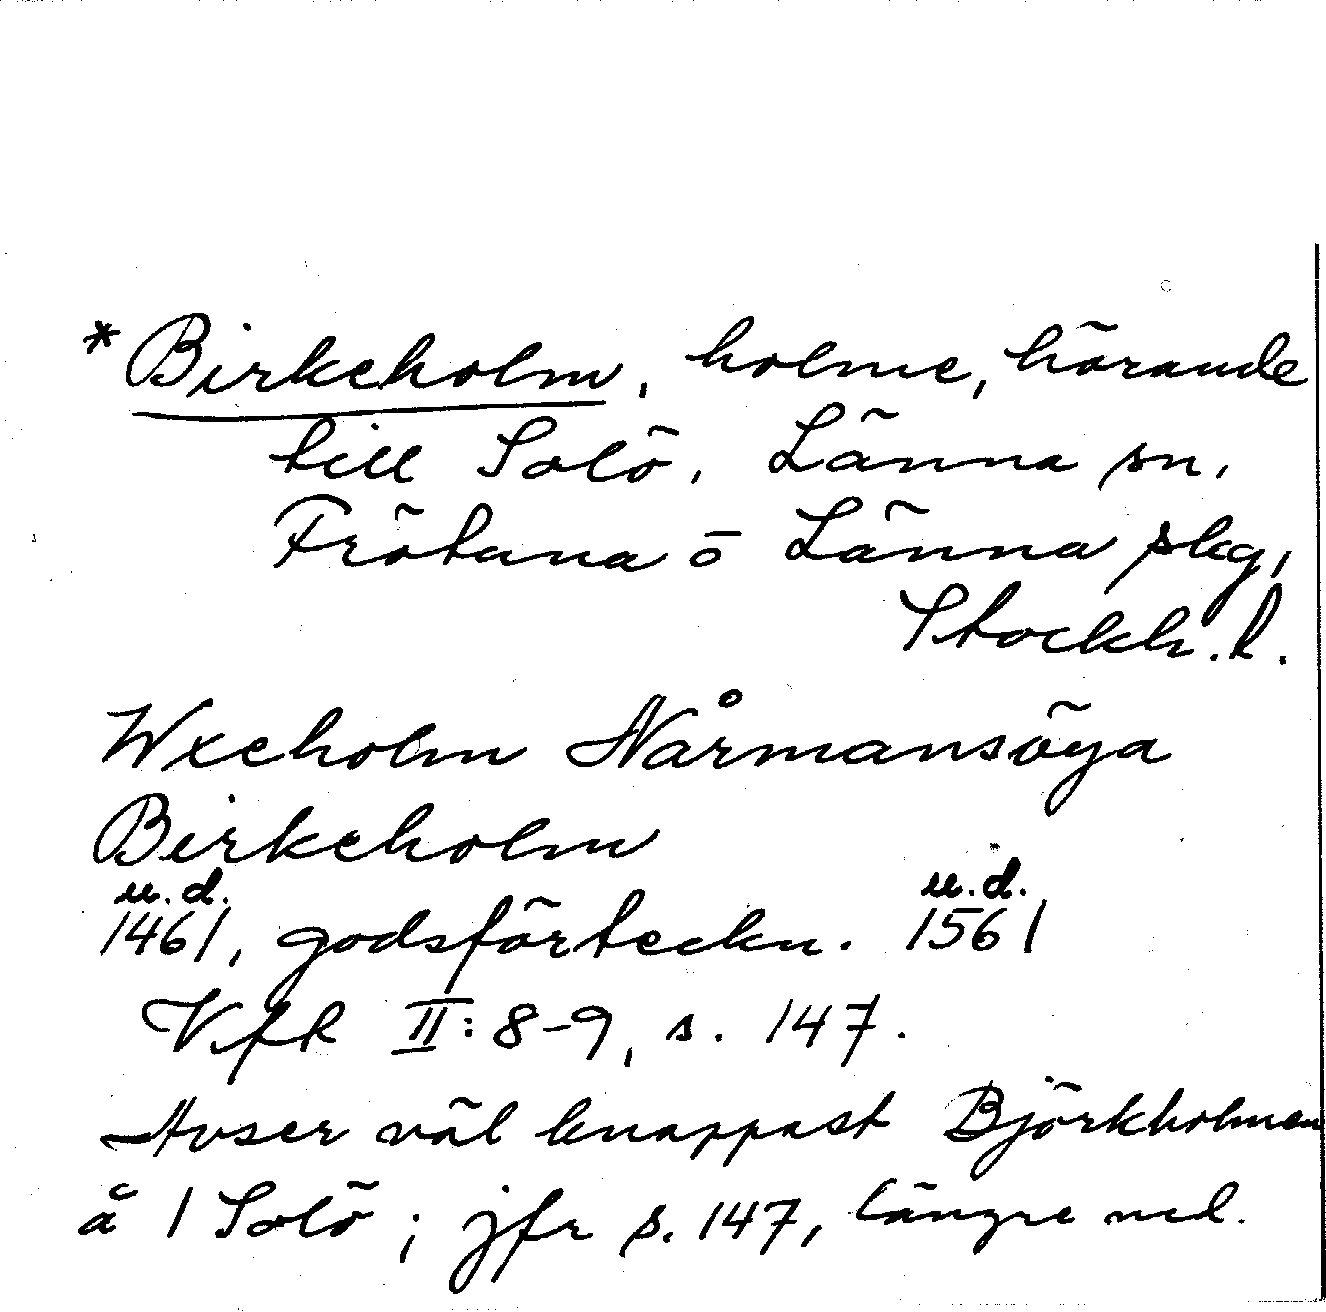 * Birkeholm, holme, hörande
till Solö, Länna sn,
Frötuna o Länna skg,
Stockh. l.
Wxeholm Nårmansöya
Birkeholm
u.d. u.d.
1461, godsförteckn. 1561
Vfk II: 8-9, s. 147.
Avser väl knappast Björkholmen
å 1 Solö ; jfr s. 147, längre ned.